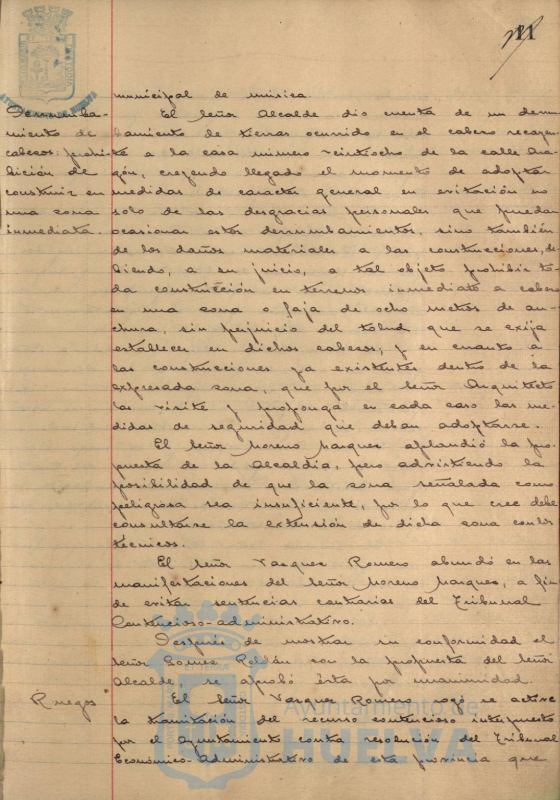 11
municipal de música.
Derrumba-
miento de
cabezos; prohi-
bición de
construir en
una zona
inmediata.
El Señor Alcalde dio cuenta de un derrum
bamiento de tierras ocurrido en el cabezo recayen
te a la casa número veintiocho de la calle Ara-
gón, creyendo llegado el momento de adoptar
medidas de carácter general en evitación no
solo de las desgracias personales que puedan
ocasionar estos derrumbamientos, sino también
de los daños materiales a las construcciones, de-
biendo, a su juicio, a tal objeto prohibir to-
da construcción en terrenos inmediato a cabezo
en una zona o faja de ocho metros de an-
chura, sin perjuicio del talud que se exija
establecer en dichos cabezos; y en cuanto a
las construcciones ya existentes dentro de la
expresada zona, que por el Señor Arquitecto
las visite y proponga en cada caso las me-
didas de seguridad que deban adoptarse.
El Señor Moreno Marquez aplaudió la pro-
puesta de la Alcaldía, pero advirtiendo la
posibilidad de que la zona señalada como
peligrosa sea insuficiente, por lo que cree debe
consultarse la extensión de dicha zona con los
técnicos.
El Señor Vazquez Romero abundó en las
manifestaciones del Señor Moreno Marquez, a fin
de evitar sentencias contrarias del Tribunal
Contencioso-administrativo.
Después de mostrar su conformidad el
Señor Gomez Roldán con la propuesta del Señor
Alcalde, se aprobó ésta por unanimidad.
Ruegos
El Señor Vazquez Romero rogó se active
la tramitación del recurso contencioso interpuesto
por el Ayuntamiento contra resolución del Tribunal
Económico-Administrativo de esta provincia que
Ayuntamiento de
HUELVA